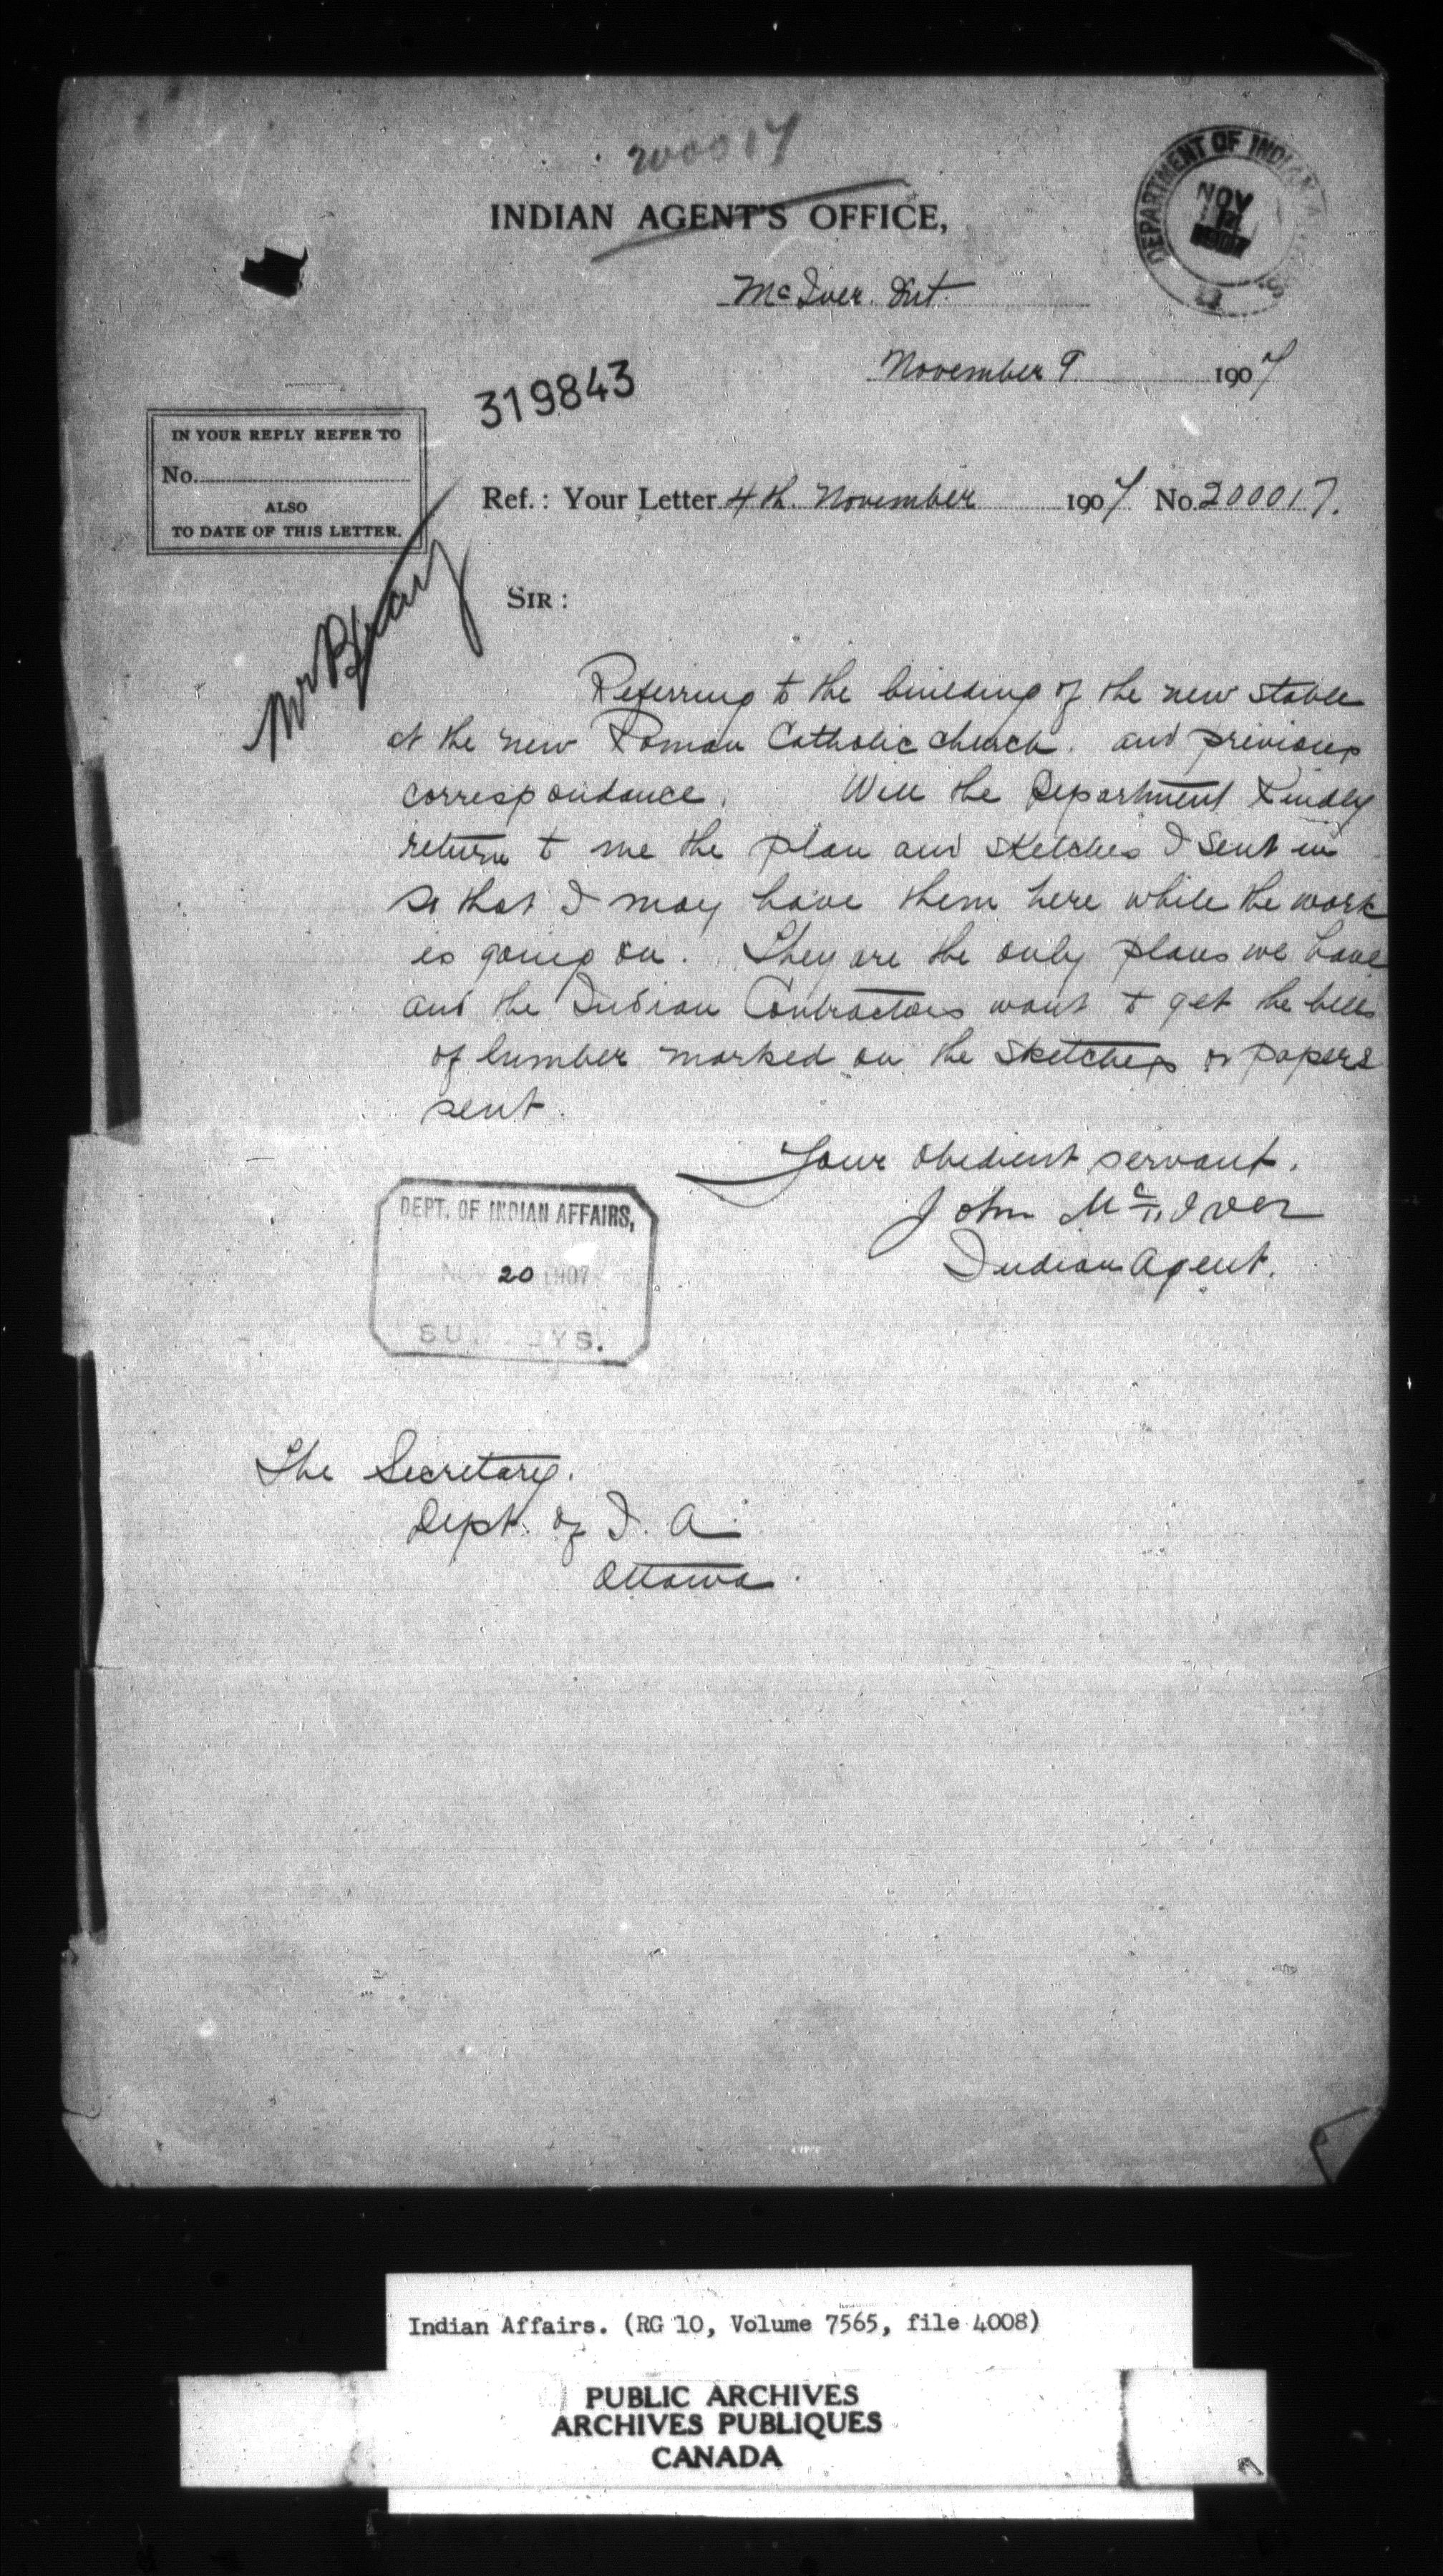 200017
INDIAN AGENT'S OFFICE,
DEPARTMENT OF INDIAN
NOV
McIver. Ont.
November 9 1907
319843
IN YOUR REPLY REFER TO
No.
ALSO
TO DATE OF THIS LETTER.
Ref.: Your Letter 4th. November 1907 No. 200017.
Mr Bray
SIR:
Referring to the building of the new stable
at the new Roman Catholic church. and previous
correspondance. Will the Department Kindly
return to me the plan and sketches I sent in
so that I may have them here while the work
is going on. They are the only plans we have
and the Indian Contractors want to get the bills
of lumber marked on the sketches or papers
sent.
Your obedient servant.
John McIver
Indian Agent.
DEPT. OF INDIAN AFFAIRS,
NOV 20 1907
The Secretary.
Dept. of I. A.
Ottawa.
Indian Affairs. (RG 10, Volume 7565, file 4008)
PUBLIC ARCHIVES
ARCHIVES PUBLIQUES
CANADA